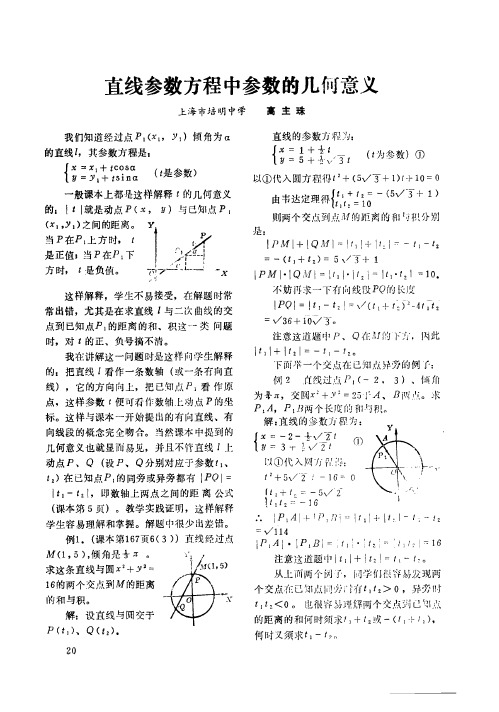 直线参数方程中参数的几何意义
上海市培明中学　高 主 珠
我们知道经过点P₁(x₁, y₁) 倾角为α
的直线l, 其参数方程是:
{ x=x₁+tcosα
y=y₁+tsinα (t是参数)
一般课本上都是这样解释 t 的几何意义
的: |t|就是动点P(x, y) 与已知点P₁
(x₁,y₁)之间的距离。
当P在P₁上方时, t
是正值; 当P在P₁下
方时, t 是负值。
Y
P
X
这样解释, 学生不易接受, 在解题时常
常出错, 尤其是在求直线 l 与二次曲线的交
点到已知点P₁的距离的和、积这一类 问题
时, 对 t 的正、负号搞不清。
我在讲解这一问题时是这样向学生解释
的: 把直线 l 看作一条数轴 (或一条有向直
线), 它的方向向上, 把已知点P₁ 看 作原
点, 这样参数 t 便可看作数轴上动点 P 的坐
标。这样与课本一开始提出的有向直线、有
向线段的概念完全吻合。当然课本中提到的
几何意义也就显而易见, 并且不管直线 l 上
动点 P、Q (设 P、Q分别对应于参数t₁、
t₂) 在已知点P₁的同旁或异旁都有 |PQ|=
|t₁-t₂|, 即数轴上两点之间的距 离 公式
(课本第 5 页)。教学实践证明, 这样解释
学生容易理解和掌握。解题中很少出差错。
例1. (课本第167页6(3)) 直线经过点
M(1,5), 倾角是⅓π 。
求这条直线与圆x²+y²=
16的两个交点到M的距离
的和与积。
Y
M(1,5)
P
O
Q
X
解: 设直线与圆交于
P(t₁)、Q(t₂)。
20
直线的参数方程为:
{ x=1+½t
y=5+½√3t (t为参数) ①
以①代入圆方程得t²+(5√3+1)t+10=0
由韦达定理得{ t₁+t₂=-(5√3+1)
t₁t₂=10
则两个交点到点M的距离的和与积分别
是:
|PM|+|QM|=|t₁|+|t₂|=-t₁-t₂
=-(t₁+t₂)=5√3+1
|PM|·|QM|=|t₁|·|t₂|=|t₁·t₂|=10,
不妨再求一下有向线段PQ的长度
|PQ|=|t₁-t₂|=√(t₁+t₂)²-4t₁t₂
=√36+10√3。
注意这道题中P、Q在M的下方, 因此
|t₁|+|t₂|=-t₁-t₂。
下面举一个交点在已知点异旁的例子:
例 2 直线过点P₁(-2, 3)、倾角
为¾π, 交圆x²+y²=25于A、B两点。求
P₁A, P₁B两个长度的和与积。
解: 直线的参数方程为:
{ x=-2-½√2t
y=3+½√2t ①
以①代入圆方程得:
t²+5√2t-16=0
{ t₁+t₂=-5√2
t₁t₂=-16
Y
A
P₁
X
∴ |P₁A|+|P₁B|=|t₁|+|t₂|=t₁-t₂
=√114
|P₁A|·|P₁B|=|t₁|·|t₂|=|t₁t₂|=16
注意这道题中|t₁|+|t₂|=t₁-t₂。
从上面两个例子, 同学们很容易发现两
个交点在已知点同旁时有t₁t₂>0, 异旁时
t₁t₂<0。也很容易理解两个交点到已知点
的距离的和何时须求t₁+t₂或-(t₁+t₂),
何时又须求t₁-t₂。